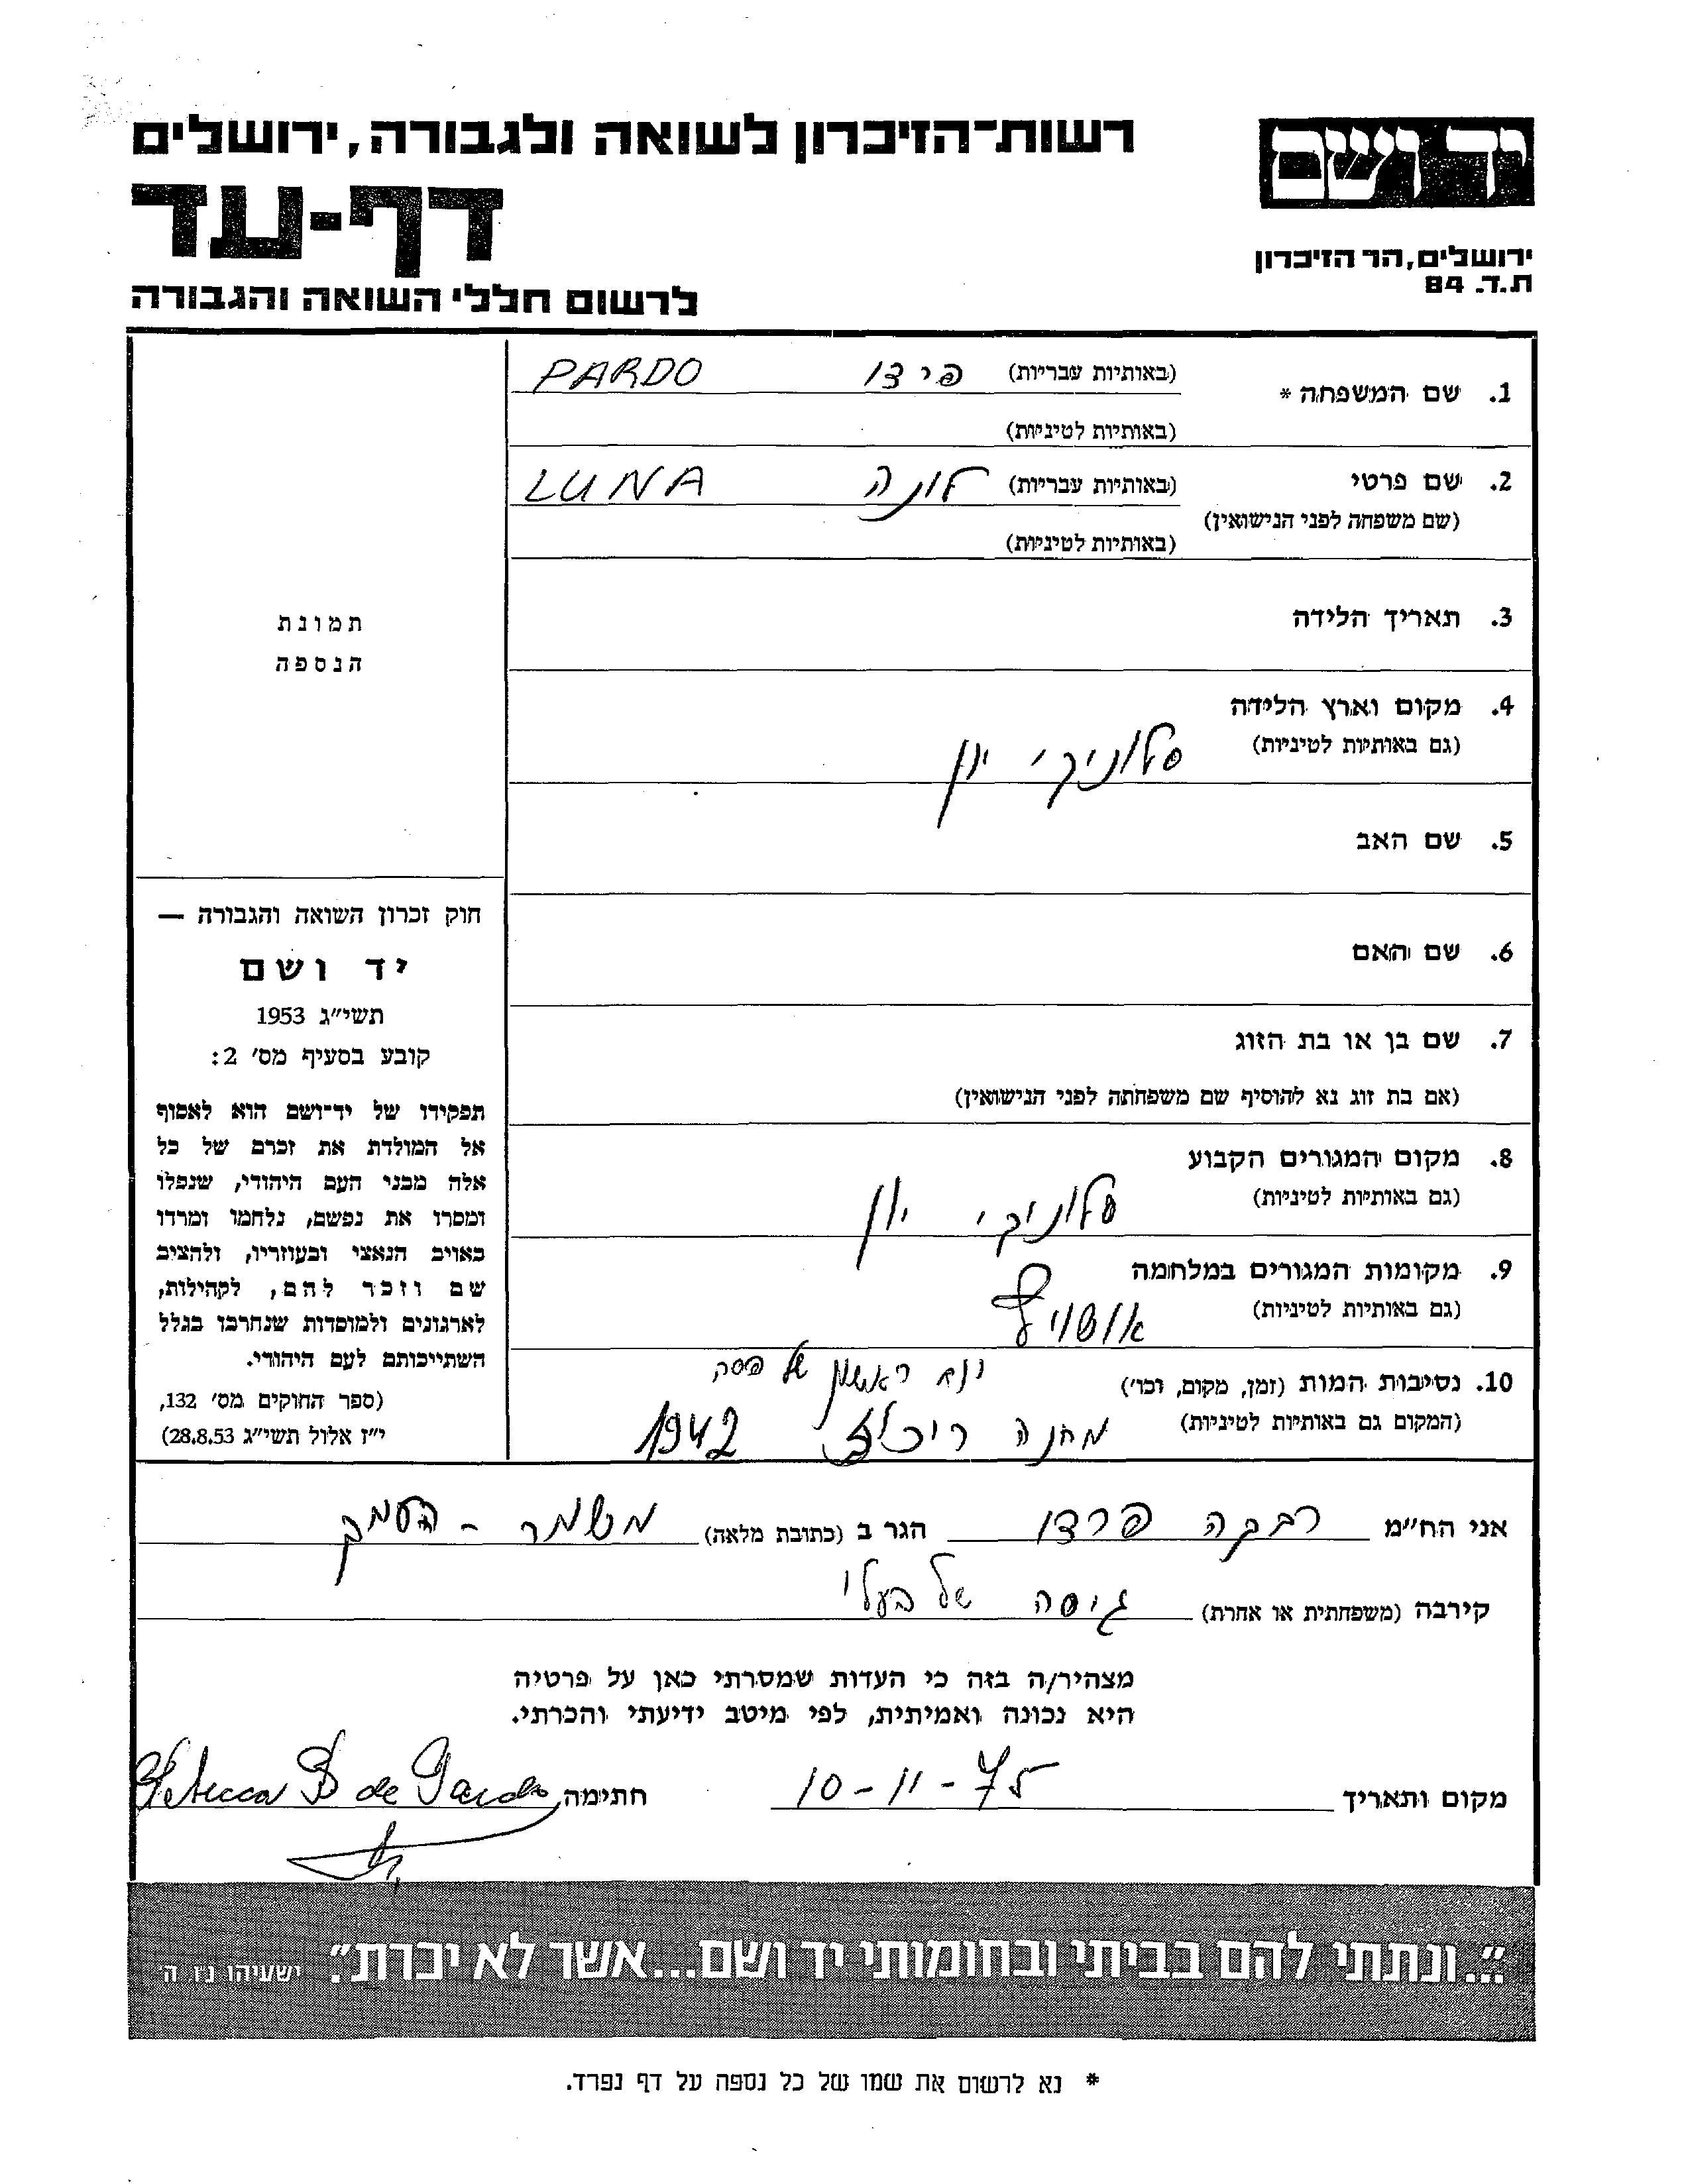 יד ושם
ירושלים, הר הזיכרון
ת.ד. 84
רשות-הזיכרון לשואה ולגבורה, ירושלים
דף-עד
לרשום חללי השואה והגבורה
1. שם המשפחה * (באותיות עבריות) פרדו PARDO
(באותיות לטיניות)
2. שם פרטי (באותיות עבריות) לונה LUNA
(שם משפחה לפני הנישואין)
(באותיות לטיניות)
3. תאריך הלידה
4. מקום וארץ הלידה
(גם באותיות לטיניות) סלוניקי יון
5. שם האב
6. שם האם
7. שם בן או בת הזוג
(אם בת זוג נא להוסיף שם משפחתה לפני הנישואין)
8. מקום המגורים הקבוע
(גם באותיות לטיניות) סלוניקי יון
9. מקומות המגורים במלחמה
(גם באותיות לטיניות) אושויץ
10. נסיבות המות (זמן, מקום, וכו') יום ראשון של פסח
(המקום גם באותיות לטיניות) מחנה 1942
תמונת
הנספה
חוק זכרון השואה והגבורה —
יד ושם
תשי"ג 1953
קובע בסעיף מס' 2:
תפקידו של יד-ושם הוא לאסוף
אל המולדת את זכרם של כל
אלה מבני העם היהודי, שנפלו
ומסרו את נפשם, נלחמו ומרדו
באויב הנאצי ובעוזריו, ולהציב
שם וזכר להם, לקהילות,
לארגונים ולמוסדות שנחרבו בגלל
השתייכותם לעם היהודי.
(ספר החוקים מס' 132,
י"ז אלול תשי"ג 28.8.53)
אני הח"מ רבקה פרדו הגר ב (כתובת מלאה) משמר - העמק
קירבה (משפחתית או אחרת) גיסה של בעלי
מצהיר/ה בזה כי העדות שמסרתי כאן על פרטיה
היא נכונה ואמיתית, לפי מיטב ידיעתי והכרתי.
מקום ותאריך 10-11-75 חתימה Rebecca B de Pardo
"...ונתתי להם בביתי ובחומותי יד ושם...אשר לא יכרת". ישעיהו נ"ו ה'
* נא לרשום את שמו של כל נספה על דף נפרד.